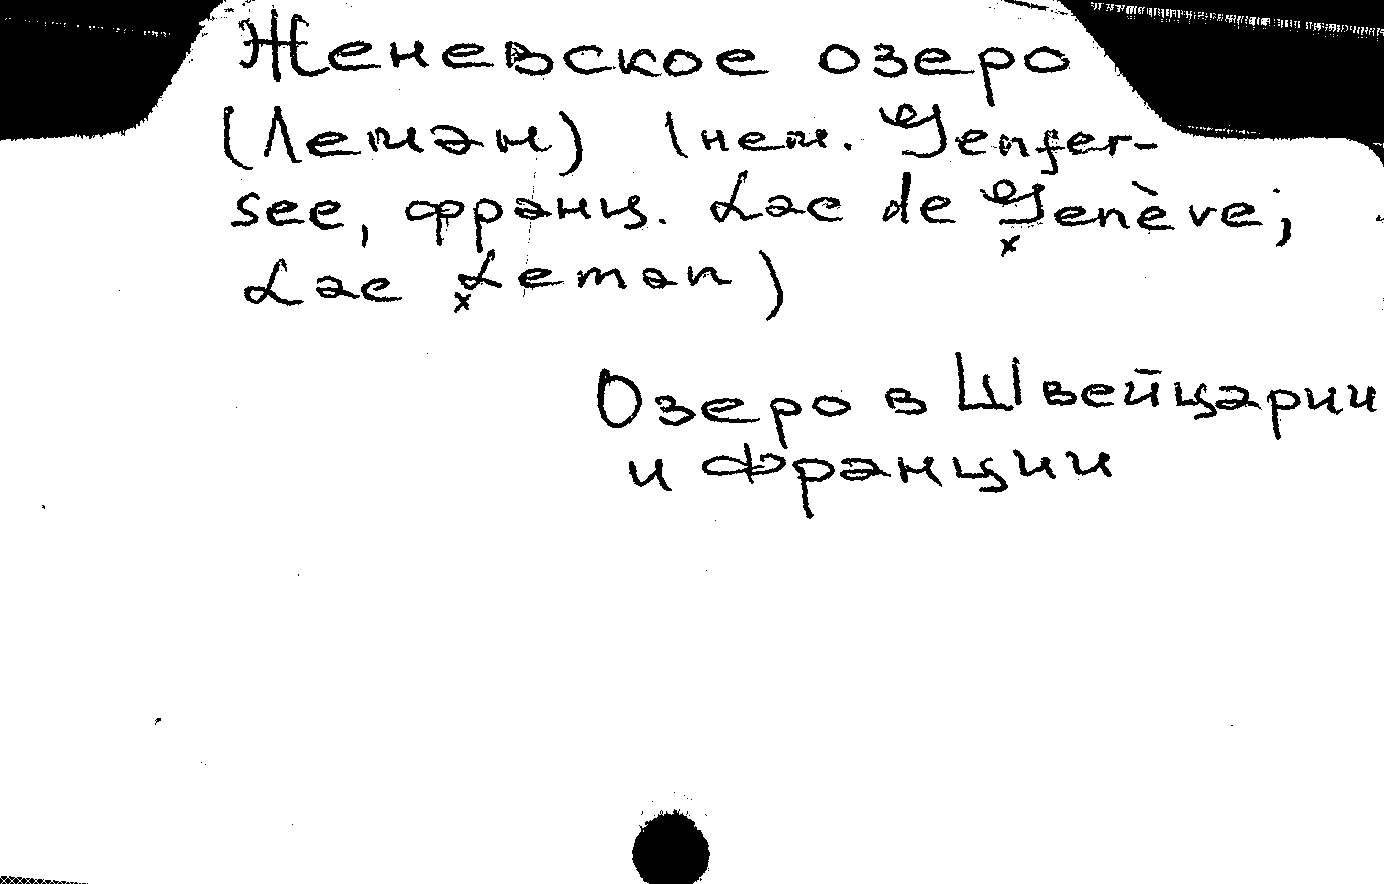 Женевское озеро
(Леман) (нем. Genfer-
see, франц. Lac de Genève;
Lac Leman)
Озеро в Швейцарии
и Франции